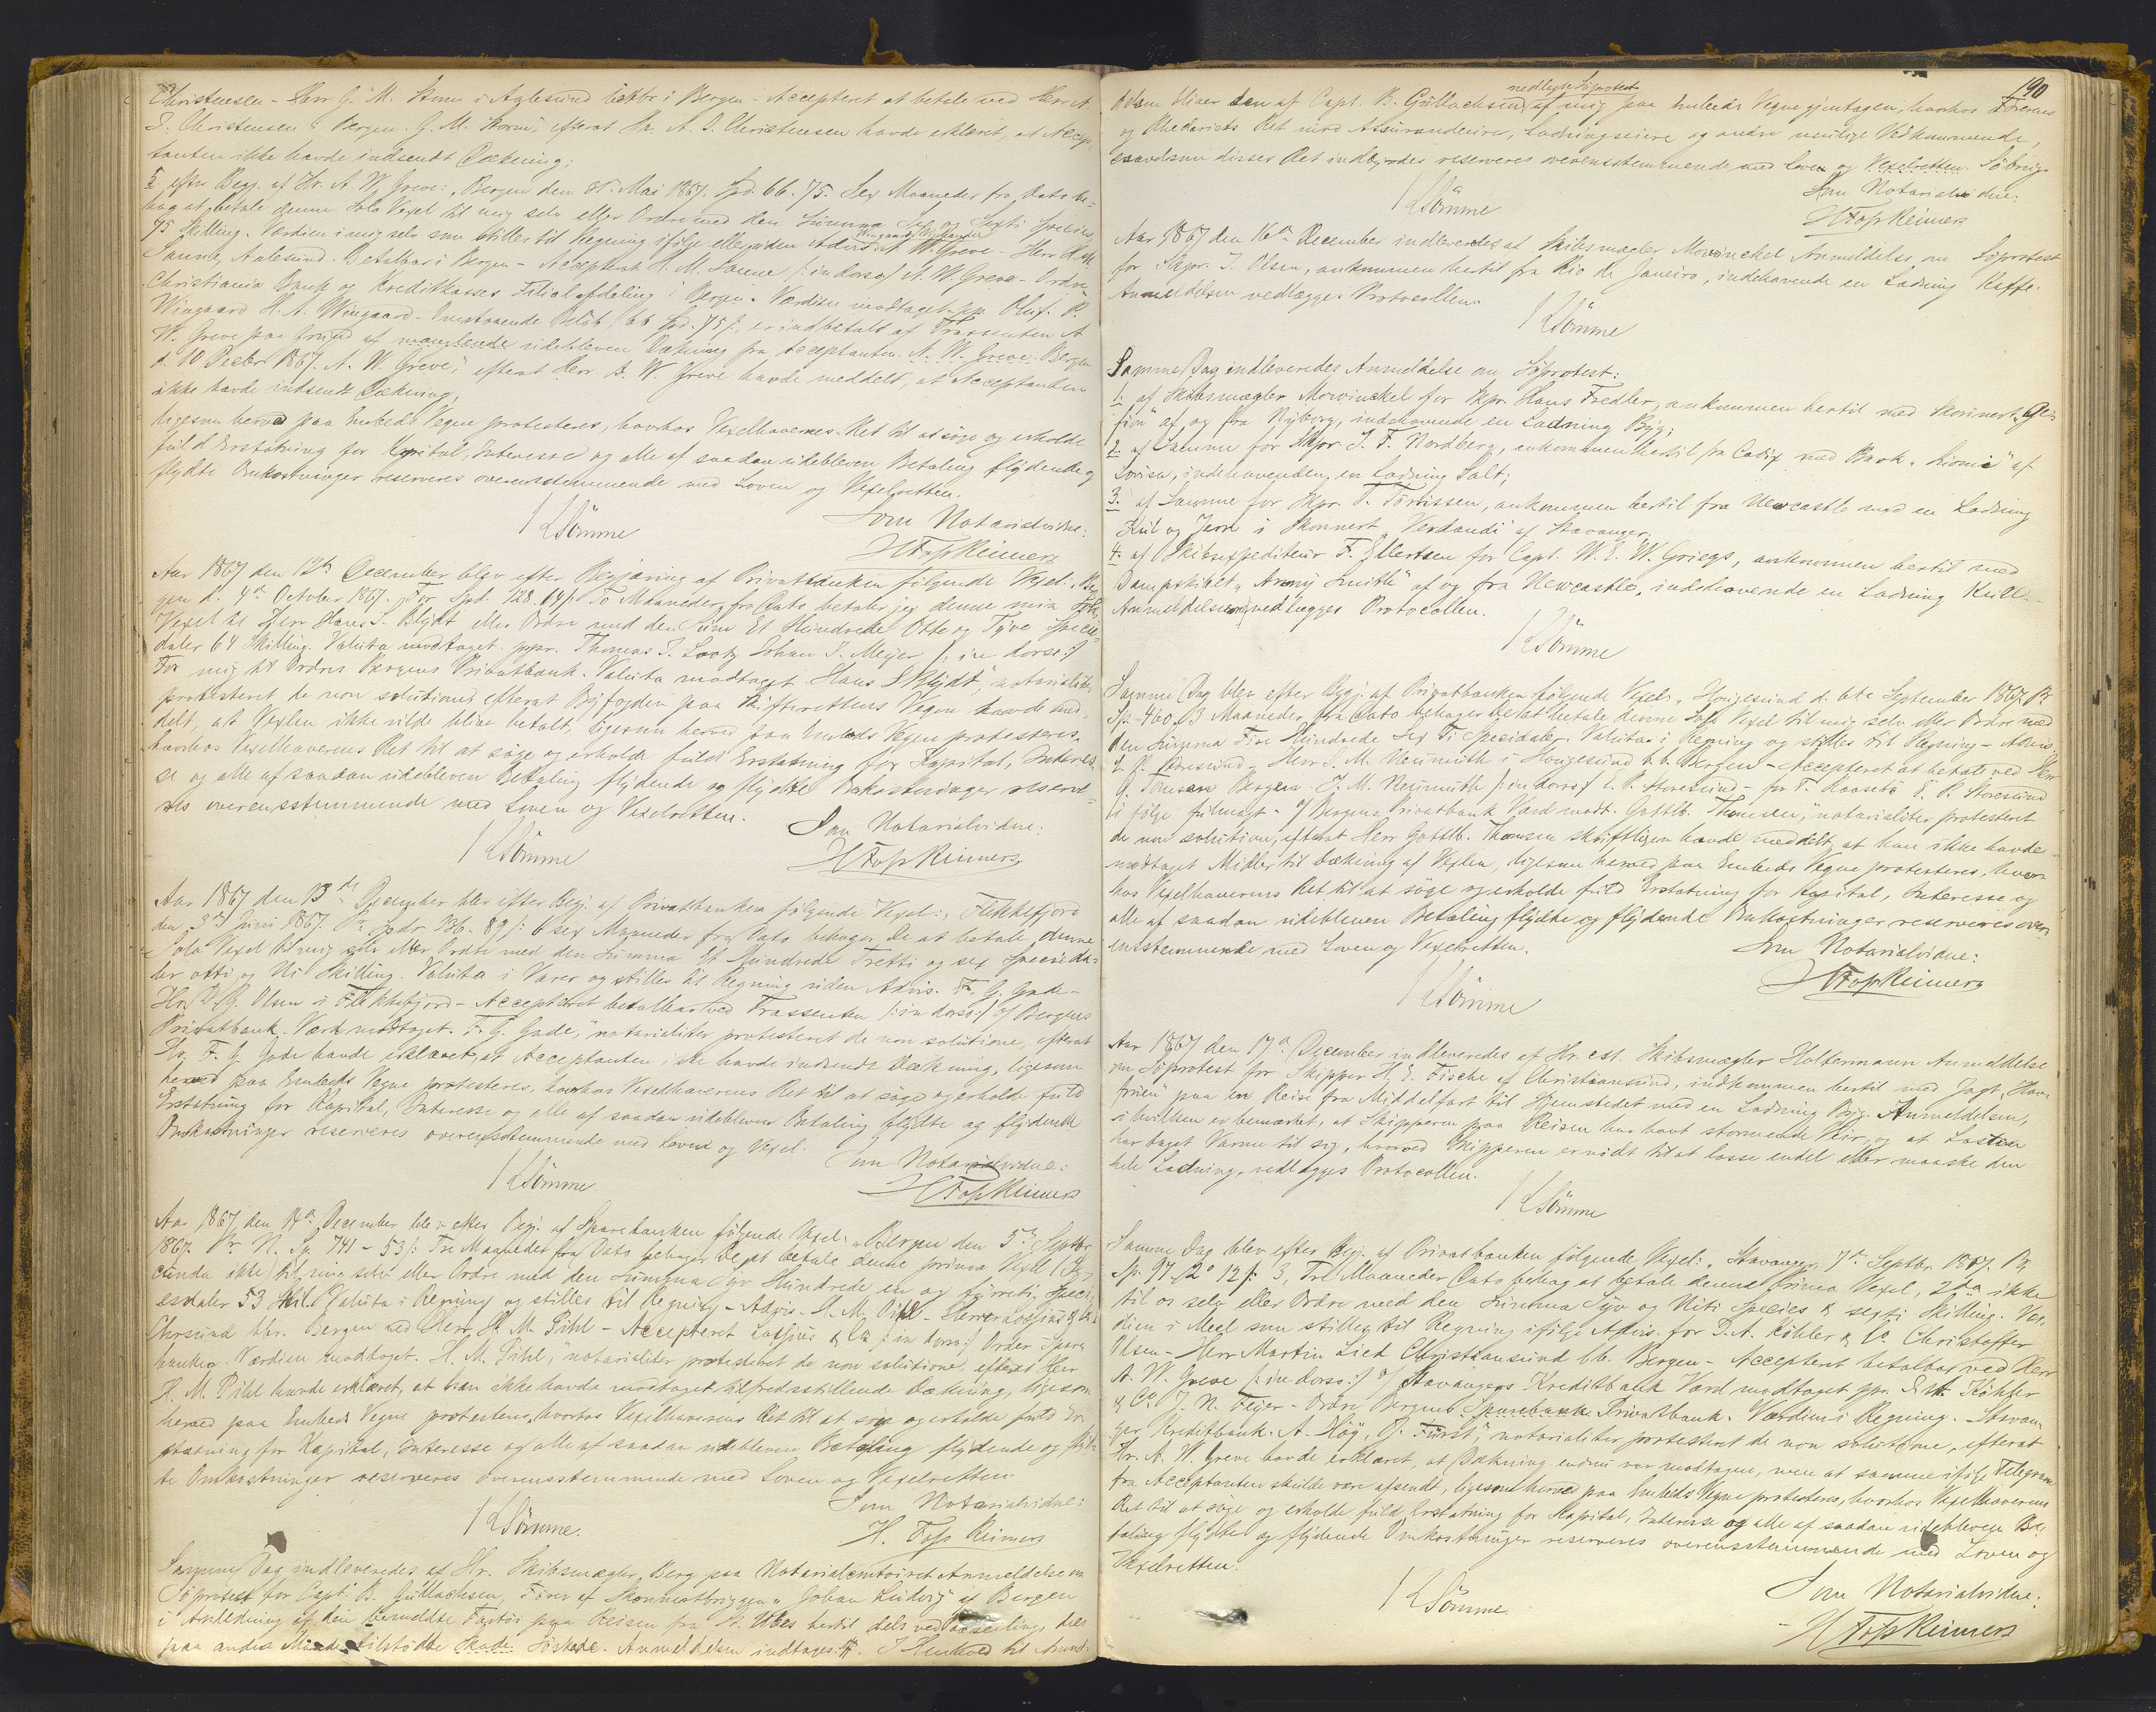 Christensen - Herr G. M. Stene i Aalesund betbr i Bergen - Accepteret at betale ved Herr A.
J. Christensen i Bergen. G. M. efterat Hr. A. J. Christensen havde erklæret, at Accep-
tanten ikke havde indsendt Dækning;
5, efter Begj. af Hr. A. W. Greve: „Bergen den 31 Mai 1867. Spd. 66. 75. Sex Maaneder fra Dato be-
hag at betale denne Sola Vexel til mig selv eller Ordre med den Summa Sex og Sexti Species
75 Skilling. Værdien i mig selv som stilles til Regning ifølge eller uden Advis A. W. Greve - Herr H. M.
Aalesund. Betalbar i Bergen - Accepteret H. M. /: in dorso :/ A. W. Greve - Ordre
Christiania Bank og Kreditkasses Filialafdeling i Bergen. Værdien modtaget. pp. Oluf. P.
Wingaard H. A. Wingaard - Beløb, 66 Spd. 75 ß, er indbetalt af Trassenten A
W. Greve paa Grund af manglende udebleven Dækning fra Acceptanten. A. W. Greve. Bergen
d. 10 Decbr 1867. A. W. Greve", efterat Herr A. W. Greve havde meddelt, at Acceptanten
ikke havde indsendt Dækning,
ligesom herved paa Embeds Vegne protesteres, hvorhos Vexelhavernes Ret til at søge og erholde
fuld Erstatning for Kapital, Interesse og alle af saadan udebleven Betaling flydende og
flydte Omkostninger reserveres overensstemmende med Loven og Vexelretten.
Sømme
Som Notarialvidne:
H Fops Reimers
Aar 1867 den 12te December blev efter Begjæring af Privatbanken følgende Vexel: „Ber-
gen d. 4de October 1867. for Spd. 128. 64 ß. To Maaneder fra Dato betaler jeg denne min Sola
Vexel til Herr Hans J. Blydt eller Ordre med den Sum Et Hundrede Otte og Tyve Specie-
daler 64 Skilling. Valuta modtaget. ppr. Thomas J. Lootz Johan J. Meyer /: in dorso :/
For mig til Ordres Bergens Privatbank. Valuta modtaget. Hans J Blydt", notarialiter
protesteret de non solutione, efterat Byfogden paa Skifterettens Vegne havde med-
delt, at Vexlen ikke vilde blive betalt, ligesom herved paa Embeds Vegne protesteres,
hvorhos Vexelhaverens Ret til at søge og erholde fuld Erstatning for Kapital, Interes-
se og alle af saadan udebleven Betaling flydende og flydte Omkostninger reserve-
res overensstemmende med Loven og Vexelretten.
Sømme
Som Notarialvidne:
H Fops Reimers
Aar 1867 den 13de December blev efter Begj. af Privatbanken følgende Vexel: „Flekkefjord
den 3die Juni 1867. Pr Spdr. 136. 89 ß: 6 sex Maaneder fra Dato behager De at betale denne
Sola Vexel til mig selv eller Ordre med den Summa Et Hundrede Tretti og sex Specieda-
ler otti og Ni Skilling. Valuta i Varer og stilles til Regning uden Advis. F. G. Gade -
Hr. Olsen i Flekkefjord - Accepteret betalbar ved Trassenten /: in dorso :/ Bergens
Privatbank. Værd. modtaget. F. G. Gade," notarialiter protesteret de non solutione, efterat
Hr. F. G. Gade havde erklæret, at Acceptanten ikke havde indsendt Dækning, ligesom
herved paa Embeds Vegne protesteres, hvorhos Vexelhaverens Ret til at søge og erholde fuld
Erstatning for Kapital, Interesse og alle af saadan udebleven Betaling flydte og flydende
Omkostninger reserveres overensstemmende med Loven og Vexel.
Sømme
Som Notarialvidne:
H Fops Reimers
Aar 1867 den 14de December blev efter Begj. af Sparebanken følgende Vexel: „Bergen den 5te Septbr
1867. Pr N. Sp. 741 - 53 ß: Tre Maaneder fra Dato behager De at betale denne prima Vexel (Se-
cunda ikke) til mig selv eller Ordre med den Summa Syv Hundrede en og fyrreti Speci-
esdaler 53 Skill. Valuta i Regning og stilles til Regning - Advis. H. M. Pihl - Herrer & Co.
Chrsund bbr. Bergen ved Herr H. M. Pihl - Accepteret & Co /: in dorso :/ Order Spare-
banken. Værdien modtaget. H. M. Pihl," notarialiter protesteret de non solutione, efterat Herr
H. M. Pihl havde erklæret, at han ikke havde modtaget tilfredsstillende Dækning, ligesom
herved paa Embeds Vegne protesteres, hvorhos Vexelhaverens Ret til at søge og erholde fuld Er-
statning for Kapital, Interesse og alle af saadan udebleven Betaling flydende og flyd-
te Omkostninger reserveres overensstemmende med Loven og Vexelretten.
Sømme.
Som Notarialvidne:
H. Fops Reimers
Samme Dag indleveredes af Hr. Skibsmægler Berg paa Notarialcontoiret Anmeldelse om
Søprotest for Capt. B. Gullachsen, Fører af Skonnertbriggen „Johan Ludvig" af Bergen
i Anledning af den bemeldte Fartøi paa Reisen fra St. Ubes hertil dels ved dels
paa anden Maade tilstødte Skade. Anmeldelsen indtages. I Henhold til Anmel-
190
nedlagte Søprotest
delsen bliver den af Capt. B. Gullachsen af mig paa Embeds Vegne gjentagen, hvorhos Førerens
og Rhederiets Ret mod Assurandeurer, Ladningseiere og andre muelige Vedkommende,
saavelsom disses Ret indbyrdes reserveres overensstemmende med Loven og Vexelretten. Søbrug
Sømme
Som Notarialvidne:
H Fops Reimers
Aar 1867 den 16de December indleveredes af Skibsmægler Mowinckel Anmeldelse om Søprotest
for Skpr. J. Olsen, ankommen hertil fra Rio de Janeiro, indehavende en Ladning Kaffe.
Anmeldelsen vedlægges Protocollen.
Sømme
Samme Dag indleveredes Anmeldelse om Søprotest:
1. af Skibsmægler Mowinckel for Skpr. Hans Fredler, ankommen hertil med Skonnert
af og fra Nyborg, indehavende en Ladning Byg;
2. af Samme for Skpr. J. F. Nordberg, ankommen hertil fra Cadix med Bark af
indehavende en Ladning Salt;
3. af Samme for Skpr. T. Tönnissen, ankommen hertil fra Newcastle med en Ladning
Kul og Jern i Skonnert „Verdandi" af Stavanger;
4. af Skibsexpediteur F. Ellertsen for Capt. W. E. W. Griegs, ankommen hertil med
Dampskibet „Smith" af og fra Newcastle, indehavende en Ladning Kull.
Anmeldelserne vedlægges Protocollen.
Sømme
Samme Dag blev efter Begj. af Privatbanken følgende Vexel: „Hougesund d. 6te September 1867. Pr
Sp. 460. 3 Maaneder fra Dato behager De at betale denne Sola Vexel til mig selv eller Ordre med
den Summa Fire Hundrede Sex Ti Speciedaler. Valuta i Regning og stilles til Regning - Advis.
E. P. Storesund - Herr J. M. Neumuth i Hougesund b.b. Bergen - Accepteret at betale ved Herr
G. Tomsen Bergen. J. M. Neumuth /: in dorso :/ E. P. Storesund - pr T. E. P. Storesund
i følge fulmagt - Bergens Privatbank Værd. modt. Gottlb. Thomsen", notarialiter protesteret
de non solutione, efterat Herr Gottlb. Thomsen skriftligen havde meddelt, at han ikke havde
modtaget Midler til Dækning af Vexlen, ligesom herved paa Embeds Vegne protesteres, hvor-
hos Vexelhaverens Ret til at søge og erholde fuld Erstatning for Kapital, Interesse og
alle af saadan udebleven Betaling flydte og flydende Omkostninger reserveres over-
ensstemmende med Loven og Vexelretten.
Sømme
Som Notarialvidne:
H Fops Reimers
Aar 1867 den 17de December indleveredes af Hr. cst. Skibsmægler Holtermann Anmeldelse
om Søprotest for Skipper H. E. Fische af Christiansund, indkommen hertil med Jagt „Hav-
fruen" paa en Reise fra Middelfart til Hjemstedet med en Ladning Byg. Anmeldelsen,
i hvilken er bemærket, at Skipperen paa Reisen har havt stormende Veir, og at Lasten
har taget Varme til sig, hvorved Skipperen er nødt til at losse endel eller maaske den
hele Ladning, vedlægges Protocollen.
Sømme
Samme Dag blev efter Begj. af Privatbanken følgende Vexel: „Stavanger, 7de Septbr. 1867. Pr
Sp. 97. 2 12 ß: 3, Tre Maaneder Dato behag at betale denne Prima Vexel, 2da ikke
til os selv eller Ordre med den Summa Syv og Niti Species & sexti Skilling. Vær-
dien i Meel som stilles til Regning ifølge Advis. for D. A. Köhler & Co. Christoffer
Olsen - Herr Martin Lied Christiansund bb. Bergen - Accepteret betalbar ved Herr
A. W. Greve /: in dorso :/ Stavangers Kreditbank Værd modtaget ppr. Köhler
& Co J. N. Feyer - Ordre Bergens Sparebank Privatbank. Værdien i Regning. Stavan-
ger Kreditbank. A. Høg, O. Furst", notarialiter protesteret de non solutione, efterat
Hr. A. W. Greve havde erklæret, at Dækning endnu var modtagen, men at samme ifølge Telegram
fra Acceptanten skulde være afsendt, ligesom herved paa Embeds Vegne protesteres, hvorhos Vexelhaverens
Ret til at søge og erholde fuld Erstatning for Kapital, Interesse og alle af saadan udebleven Be-
taling flydte og flydende Omkostninger reserveres overensstemmende med Loven og
Vexelretten.
Sømme.
Som Notarialvidne:
H Fops Reimers